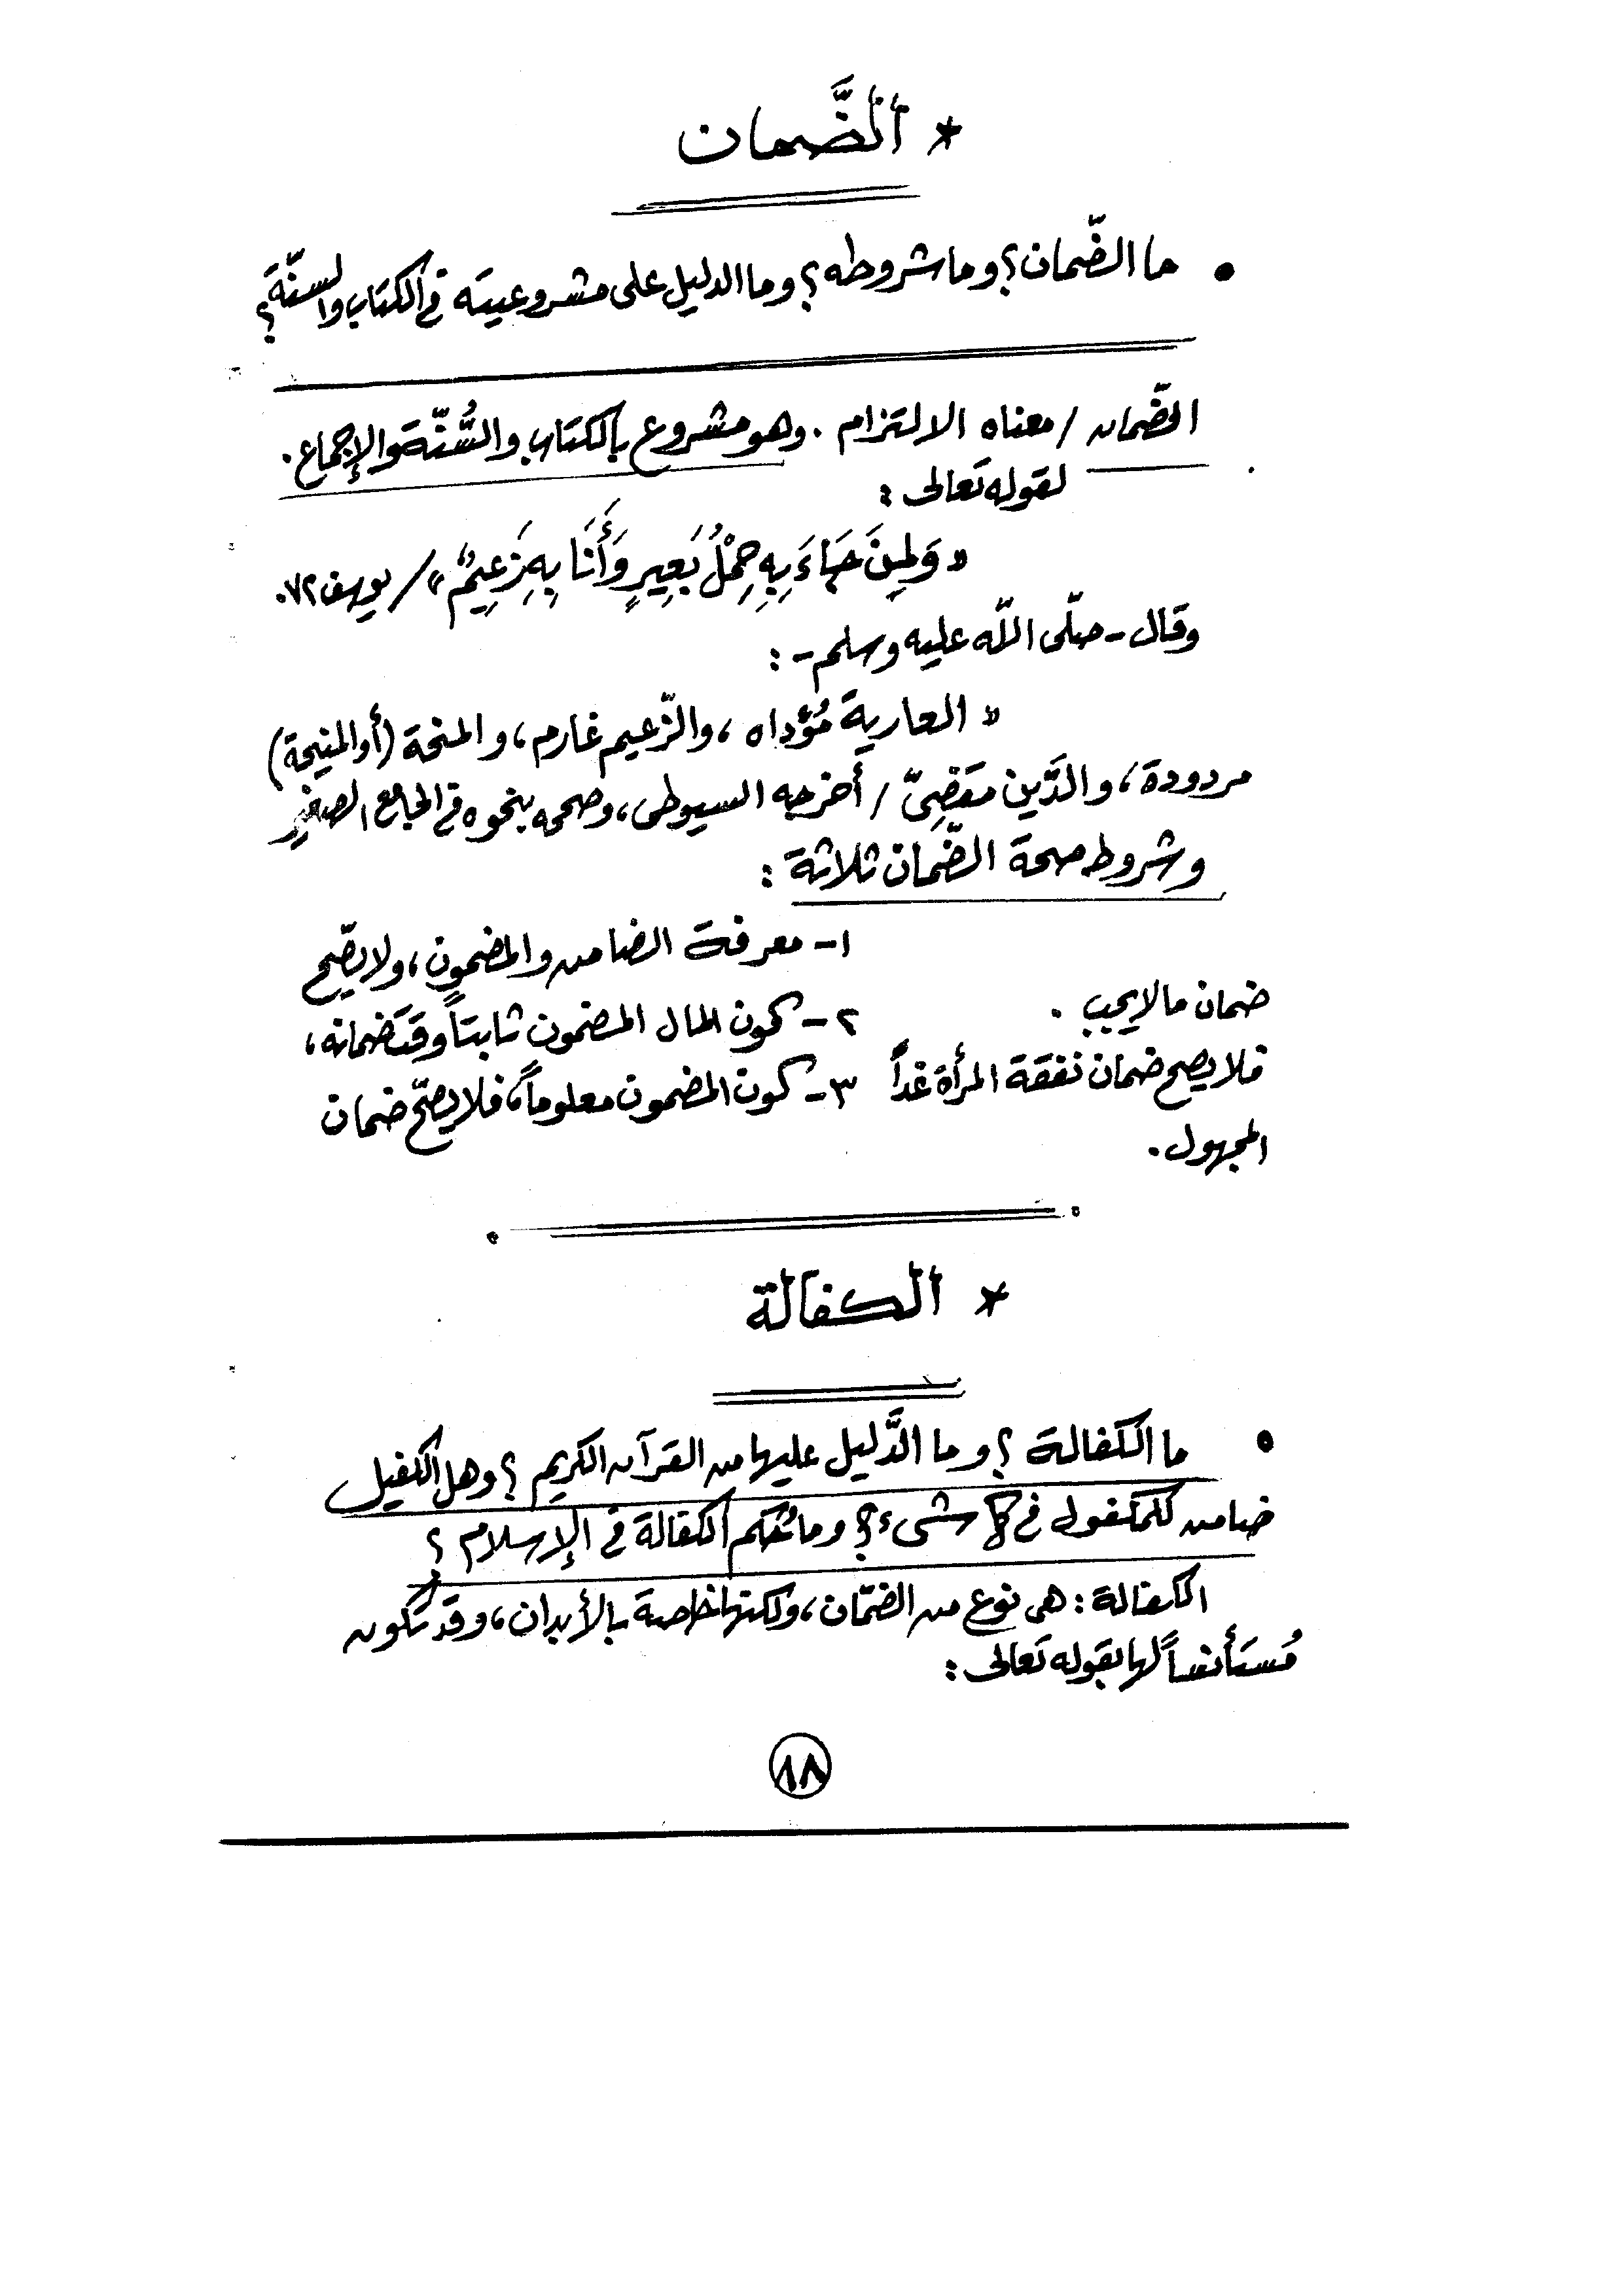 * الضَّمان
• ما الضّمان؟ وما شروطه؟ وما الدليل على مشروعيته في الكتاب والسنّة؟
الضّمان / معناه الالتزام . وهو مشروع بالكتاب والسُّنّة والإجماع .
لقوله تعالى :
« وَلِمَنْ جَاءَ بِهِ حِمْلُ بَعِيرٍ وَأَنَا بِهِ زَعِيمٌ » / يوسف ٧٢.
وقال - صلّى اللّه عليه وسلم - :
« العارية مُؤداه ، والزّعيم غارم ، والمنحة (أو المنيحة)
مردودة ، والدَّين مَقضِىّ / أخرجه السيوطى ، وصححه بنحوه في الجامع الصغير
وشروط صحة الضّمان ثلاثة :
١- معرفة الضامن والمضمون ، ولا يصّح
ضمان ما لا يجب .
٢- كون المال المضمون ثابتاً وقت ضمانه ،
فلا يصح ضمان نفقة المرأة غداً
٣- كون المضمون معلوماً ، فلا يصحّ ضمان
المجهول .
* الكفالة
• ما الكفالة ؟ وما الدَّليل عليها من القرآن الكريم ؟ وهل الكفيل
ضامن للمكفول في كل شىء ؟ وما حُكم الكفالة في الإسلام ؟
الكفالة : هى نوع من الضّمان ، ولكنها خاصة بالأبدان ، وقد تكون
مُستأنساً لها بقوله تعالى :
١٨